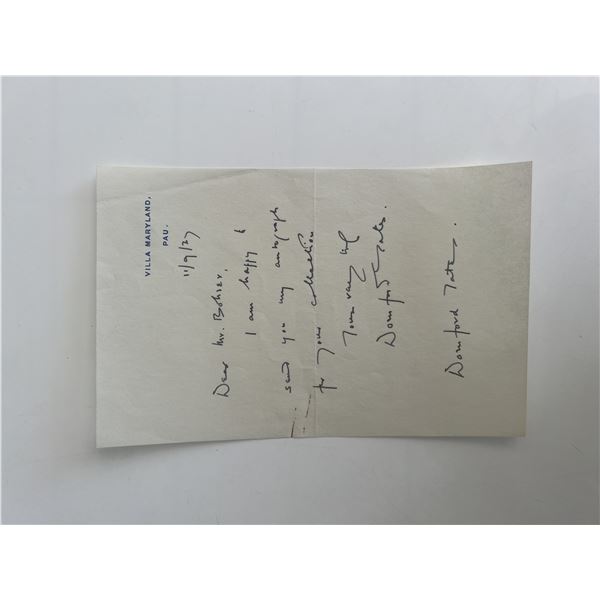 VILLA MARYLAND,
PAU.
11/9/27
Dear Mr. Bohrer,
I am happy to
send you my autograph
for your collection
Yours very truly
Dornford Yates.
Dornford Yates.